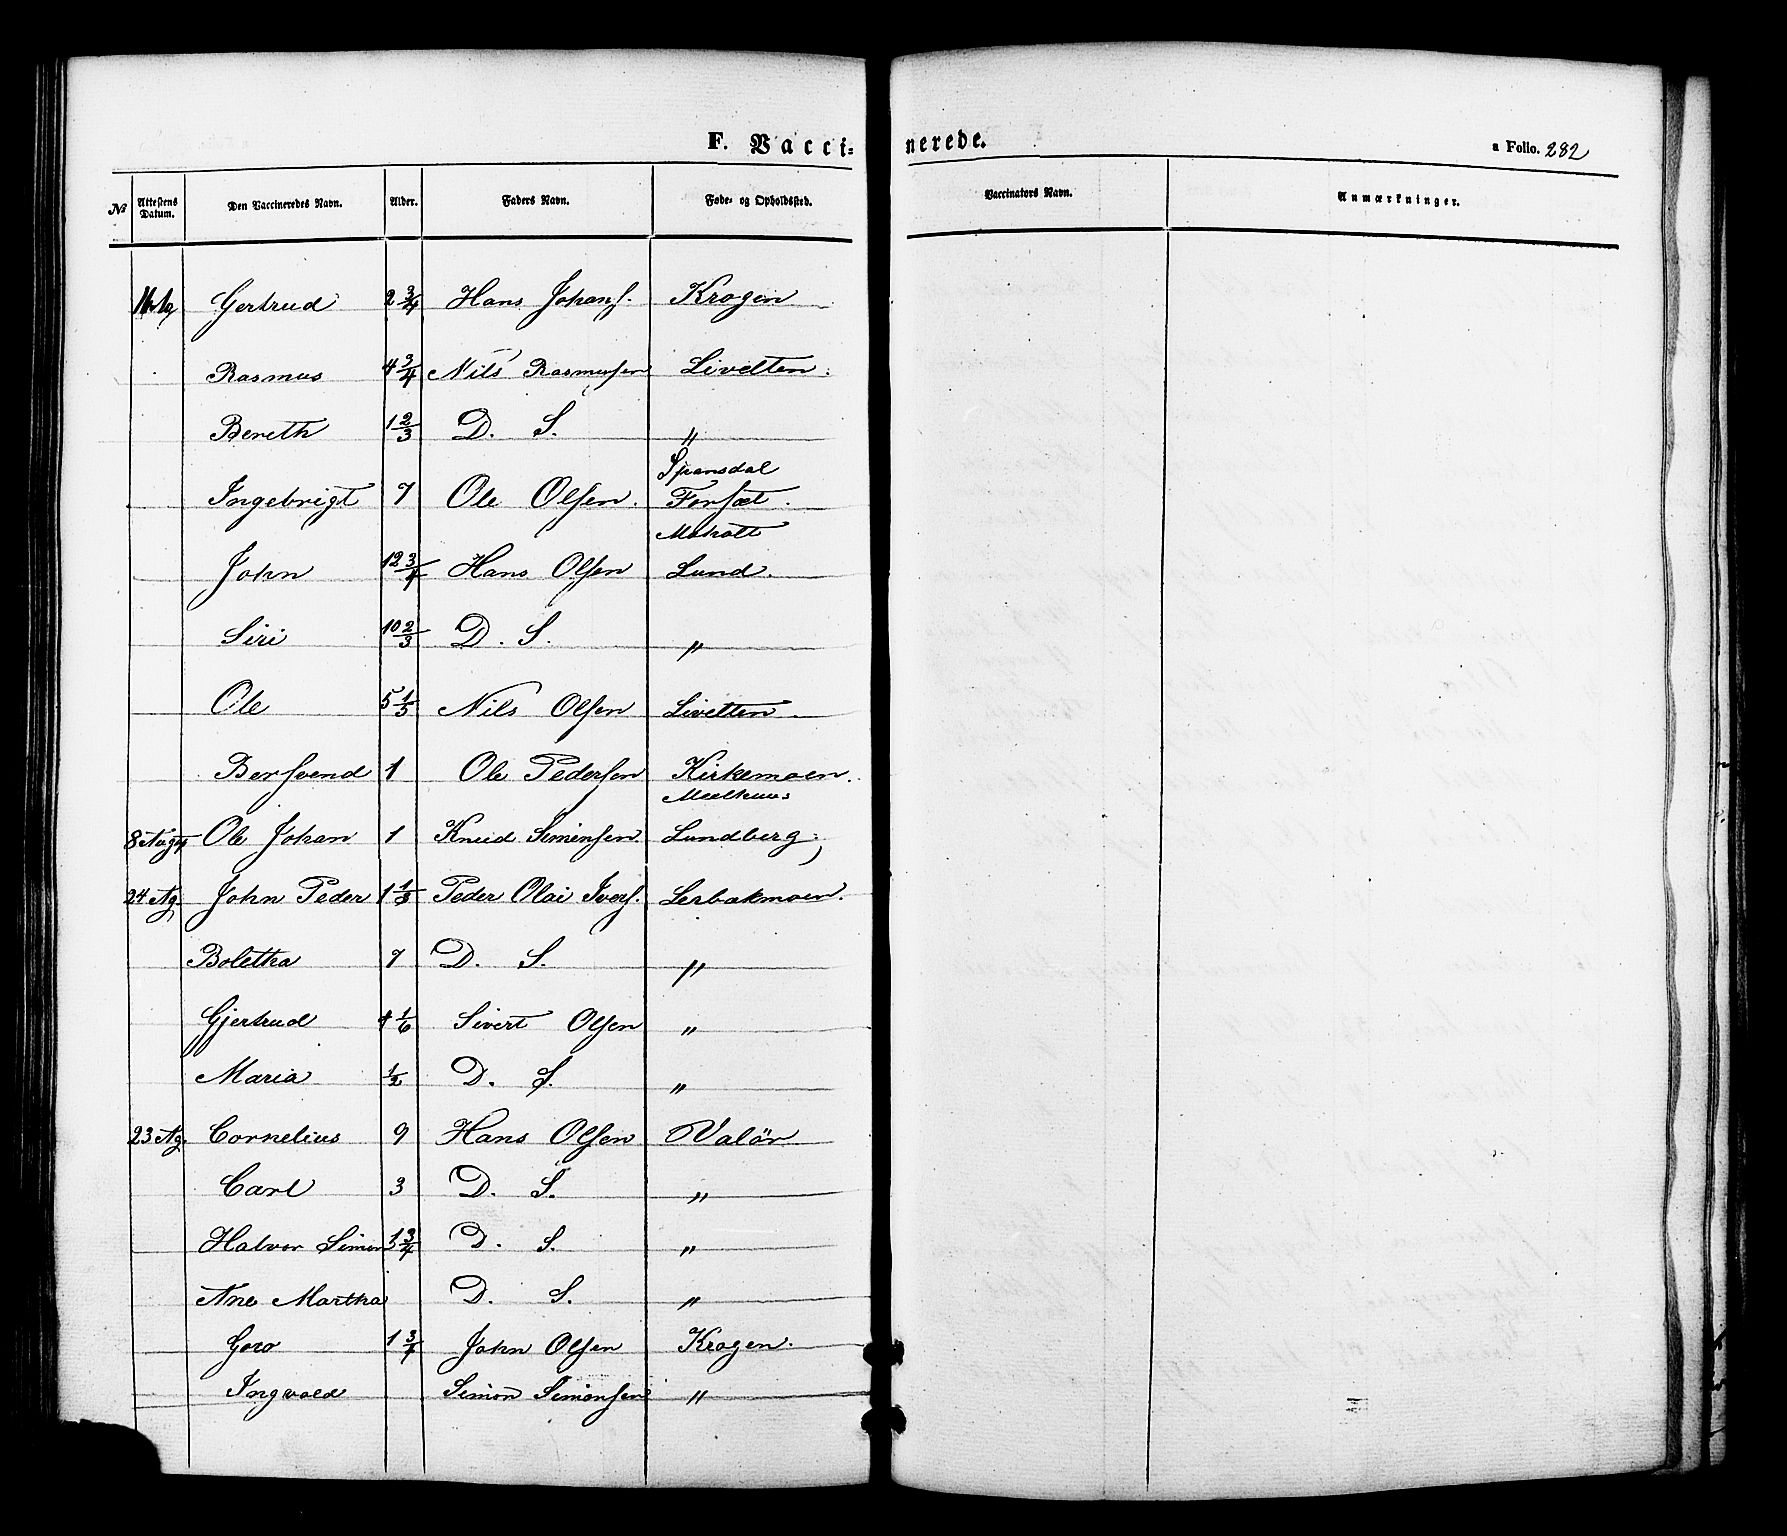 F. Vacci- nerede.
a Folio. 282
No Attestens Datum. Den Vaccineredes Navn. Alder. Faders Navn. Føde- og Opholdssted. Vaccinators Navn. Anmærkninger.
Gertrud 2 3/4 Hans Johans. Krogen
Rasmus 4 3/4 Nils Rasmussen Livelten.
Bereth 1 2/3 D. S. "
Spansdal
Ingebrigt 7 Ole Olsen. Forsæt.
John 12 3/4 Hans Olsen Lund.
Siri 10 2/3 D. S. "
Ole 5 1/5 Nils Olsen Livelten
Bersvend 1 Ole Pedersen Kirkemoen.
Meelhuus
8 August Ole Johan 1 Knud Simensen. Lundberg;
24 Ag John Peder 1 1/3 Peder Olai Ivers. Lerbakmoen.
Boletha 7 D. S. "
Gjertrud 4 1/6 Sivert Olsen "
Maria 1/2 D. S. "
23 Ag. Cornelius 9 Hans Olsen Valör
Carl 3 D. S. "
Halvor Simon 1 3/4 D. S. "
Ane Martha D. S. "
Goro 1 3/4 John Olsen Krogen.
Ingvald Simon Simonsen "